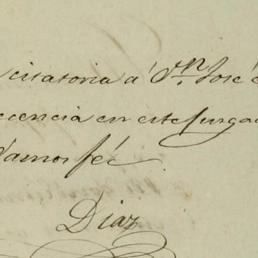 citatoria á Dn. José
en este Juzga
damos fé
Diaz